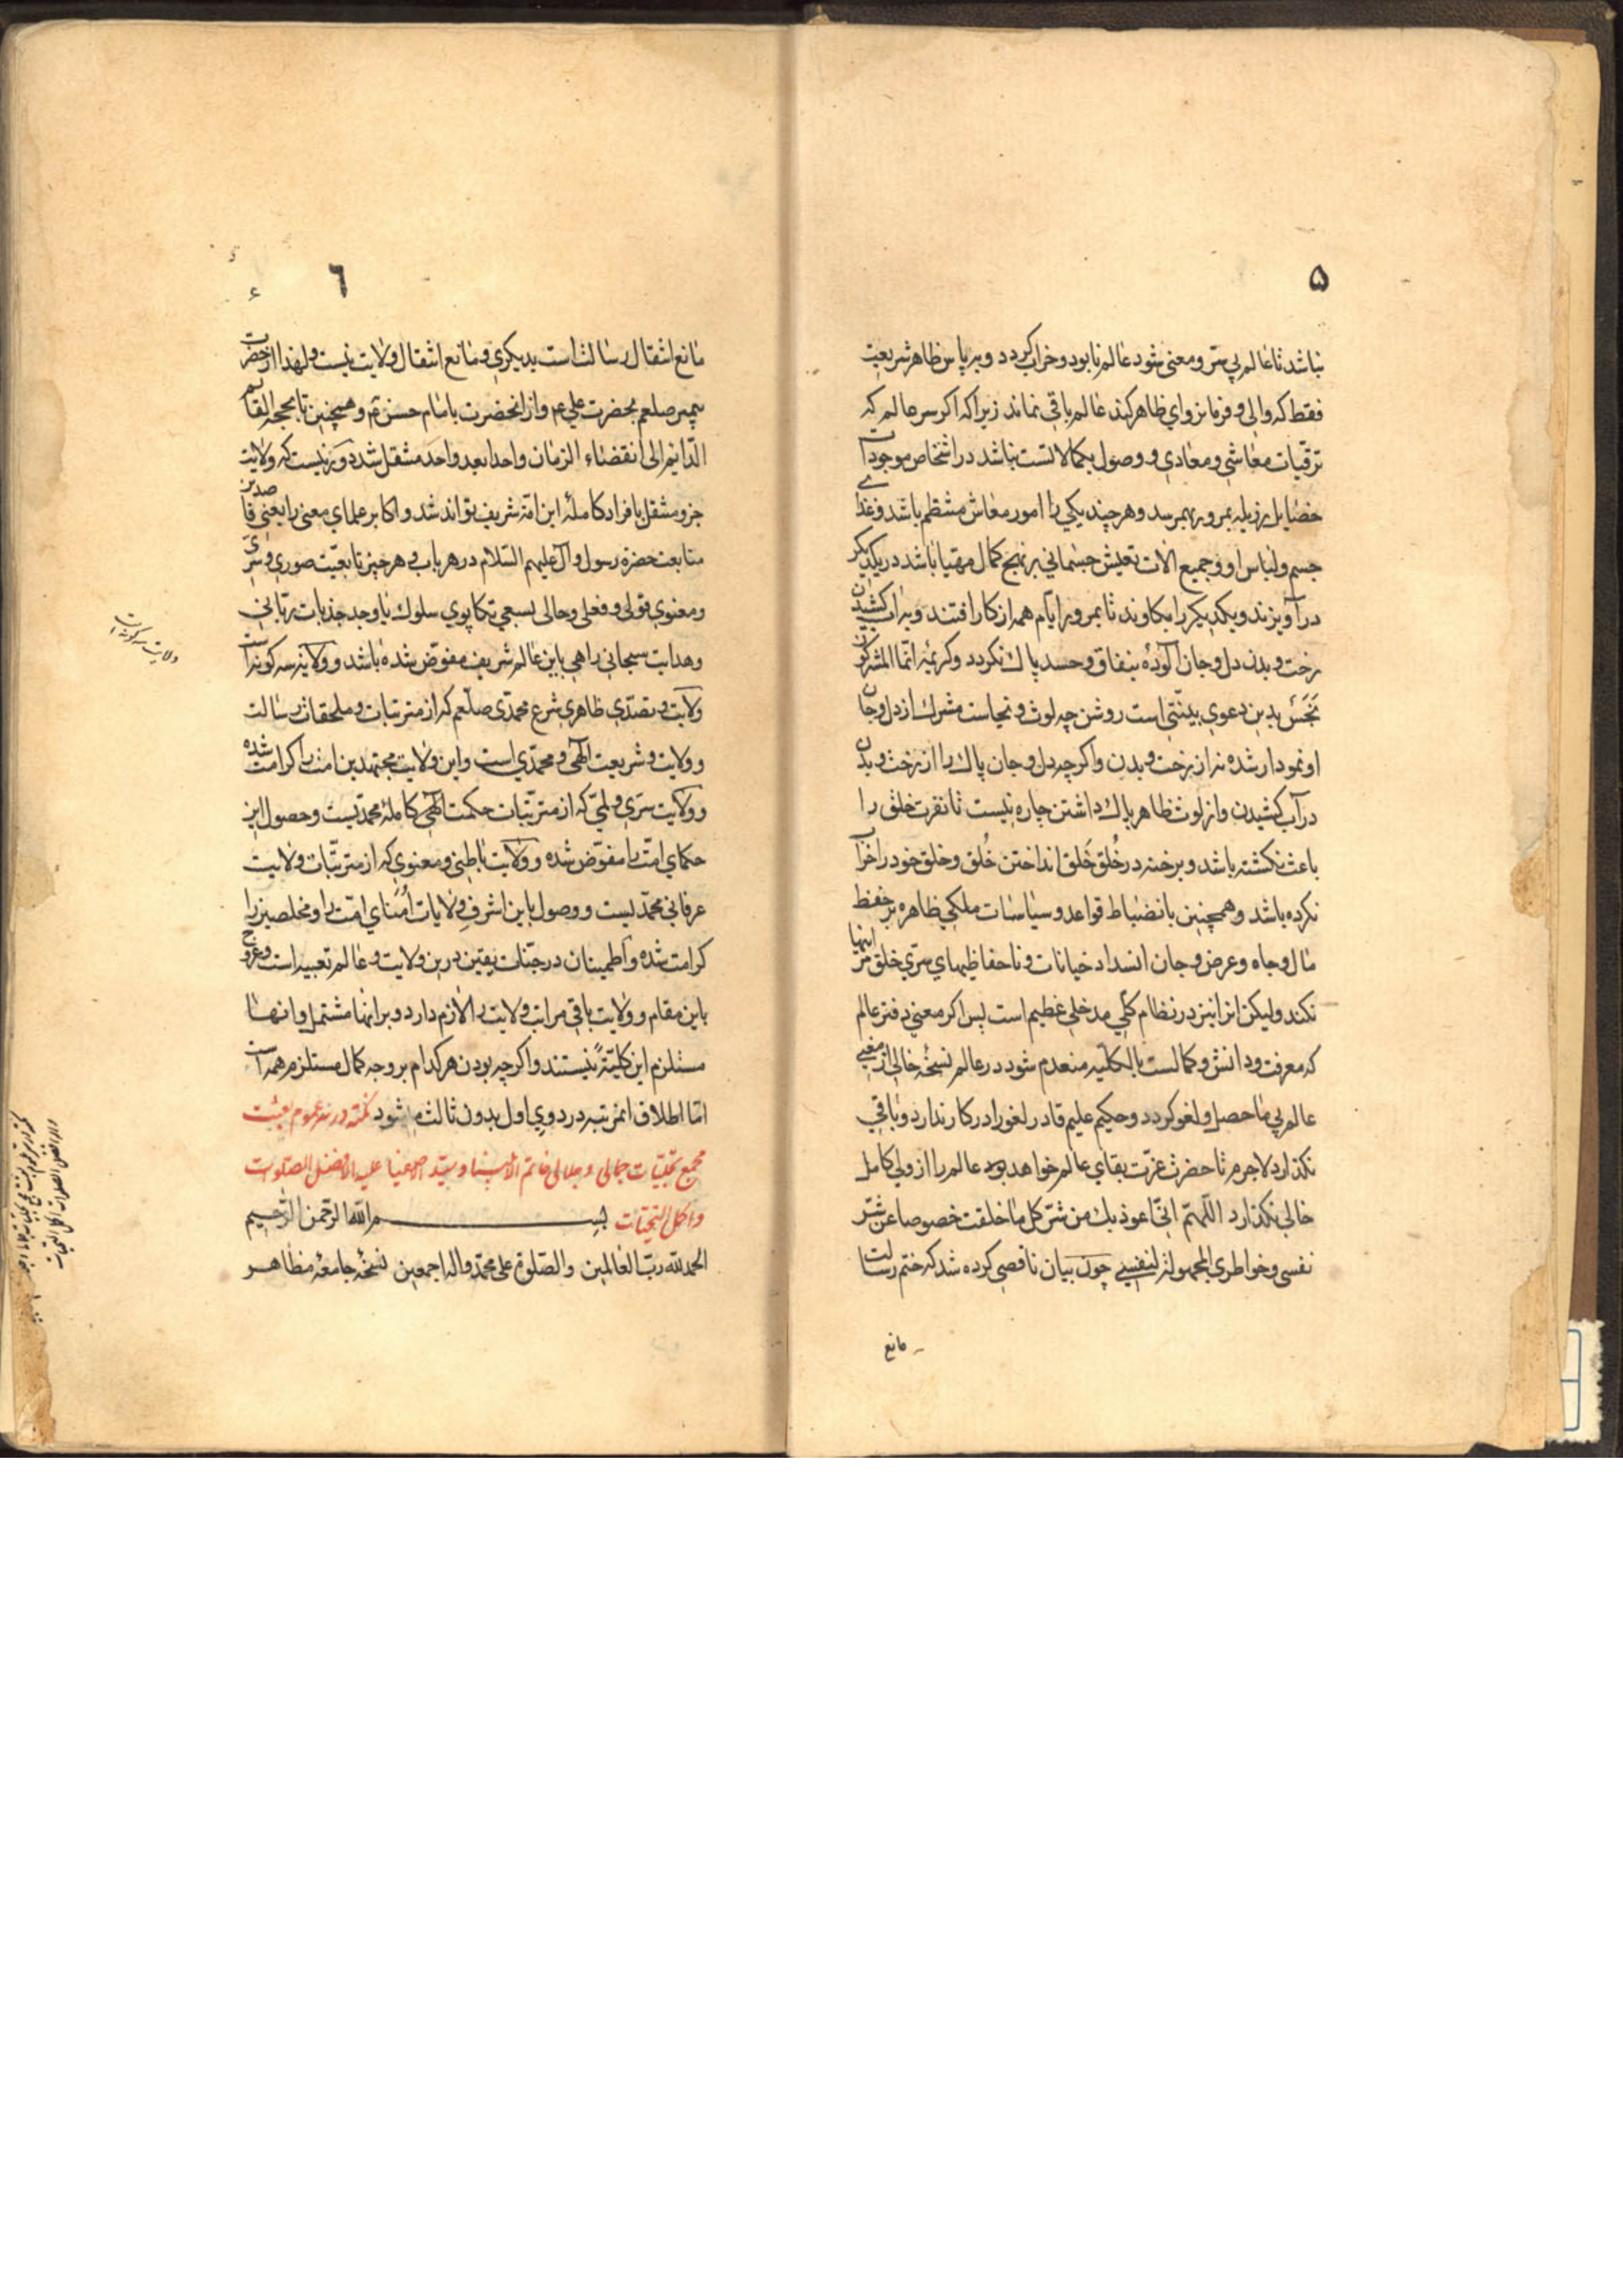 ۵
نباشد تا عالم بی سرّ و معنی شود عالم نابود و خراب کردد و بر پاس ظاهر شریعت
فقط که والی و فرمانروای ظاهر کیند عالم باقی نماند زیرا که اکر سر عالم که
ترقیات معاشی و معادی و وصول بکمالاتست نباشد در اشخاص موجودات
خصایل رزیله بمرور بهمرسد و هرچند یکی را امور معاش منتظم باشد و غذای
جسم و لباس او و جمیع الات تعیش جسمانی بر نهج کمال مهیا باشد در یکدیکر
در آویزند و یکدیکر را بکاوند تا بمرور ایام همه از کار افتند و بر آب کشیدن
رخت و بدن دل و جان آلوده بنفاق و حسد پاک نکردد و کریمه انما المشرکون
نَجَسٌ بدین دعوی بینتی است روشن چه لوث و نجاست مشرک از دل و جان
او نمودار شده نه از رخت و بدن و اکرچه دل و جان پاک را از رخت و بدن
در آب کشیدن و از لوث ظاهر پاک داشتن چاره نیست تا نفرت خلق را
باعث نکشته باشد و برخنه در خُلق خَلق انداختن خُلق و خلق خود را خراب
نکرده باشد و همچنین بانضباط قواعد و سیاسات ملکی ظاهره بر حفظ
مال و جاه و عرض و جان انسداد خیانات و ناحفاظیهای سرّی خلق مر اینها
نکند ولیکن انرا نیز در نظام کلی مدخلی عظیم است پس اکر معنی دفتر عالم
که معرفت و دانش و کمالست بالکلیه منعدم شود در عالم نسخه خالی از معنی
عالم بی ماحصل و لغو کردد و حکیم علیم قادر لغو را در کار ندارد و باقی
نکذارد لاجرم تا حضرت عزّت بقای عالم خواهد بود عالم را از ولی کامل
خالی نکذارد اللّهمّ انّی اعوذ بک من شرّ کل ما خلقت خصوصا عن شرّ
نفسی و خواطری المجهوله لنفسی چون بیان ناقصی کرده شد که ختم رسالت
مانع
٦
مانع انتقال رسالت است بدیکری و مانع انتقال ولایت نیست و لهذا از حضرت
پیمبر صلعم بحضرت علی عم و از انحضرت بامام حسن عم و همچنین تا بحجه القائم
الدّائم الی انقضاء الزمان واحدا بعد واحد منتقل شد دور نیست که ولایت
جزو منتقل بافراد کامله این امّه شریف تواند شد و اکابر علمای معنی را یعنی قاصدین
متابعت حضرة رسول و آل علیهم السّلام در هر باب و هر چیز تابعیّت صوری و سرّی
و معنوی قولی و فعلی و حالی بسعی تکاپوی سلوک یا وجد جذبات ربّانی
و هدایت سبحانی راهی باین عالم شریف مفوّض شده باشد و ولایة سه کونه است
ولایت و تصدّی ظاهری شرع محمدی صلّعم که از مترتبات و ملحقات رسالت
و ولایت و شریعت الهی و محمّدی است و این ولایت مجتهدین امت را کرامت شده
و ولایت سرّی و لمّی که از مترتّبات حکمت الهی کامله محمّدیست و حصول این
حکمای امّت را مفوّض شده و ولایت باطنی و معنوی که از مترتّبات ولایت
عرفانی محمّدیست و وصول باین اشرف ولایات اُمَنای امّت را و مخلصین را
کرامت شده و اطمینان در جنّات یقین درین ولایت و عالم تعبیر است و عروج
باین مقام و ولایت باقی مراتب ولایت را لازم دارد و بر انها مشتمل و انها
مستلزم این کلیّتهً نیستند و اکرچه بودن هر کدام بر وجه کمال مستلزم همه است
امّا اطلاق انمرتبه در دوی اول بدون ثالث میشود نکته در سر عموم بعثت
مجمع تجلیّات جمالی و جلالی خاتم الأنبیا و سیّد اصفیا علیه افضل الصلوات
و اکمل التحیّات بسم الله الرّحمن الرّحیم
الحمد لله ربّ العالمین والصّلوة علی محمّد و اله اجمعین نسخه جامعه مظاهر
ولایت سه کونه است